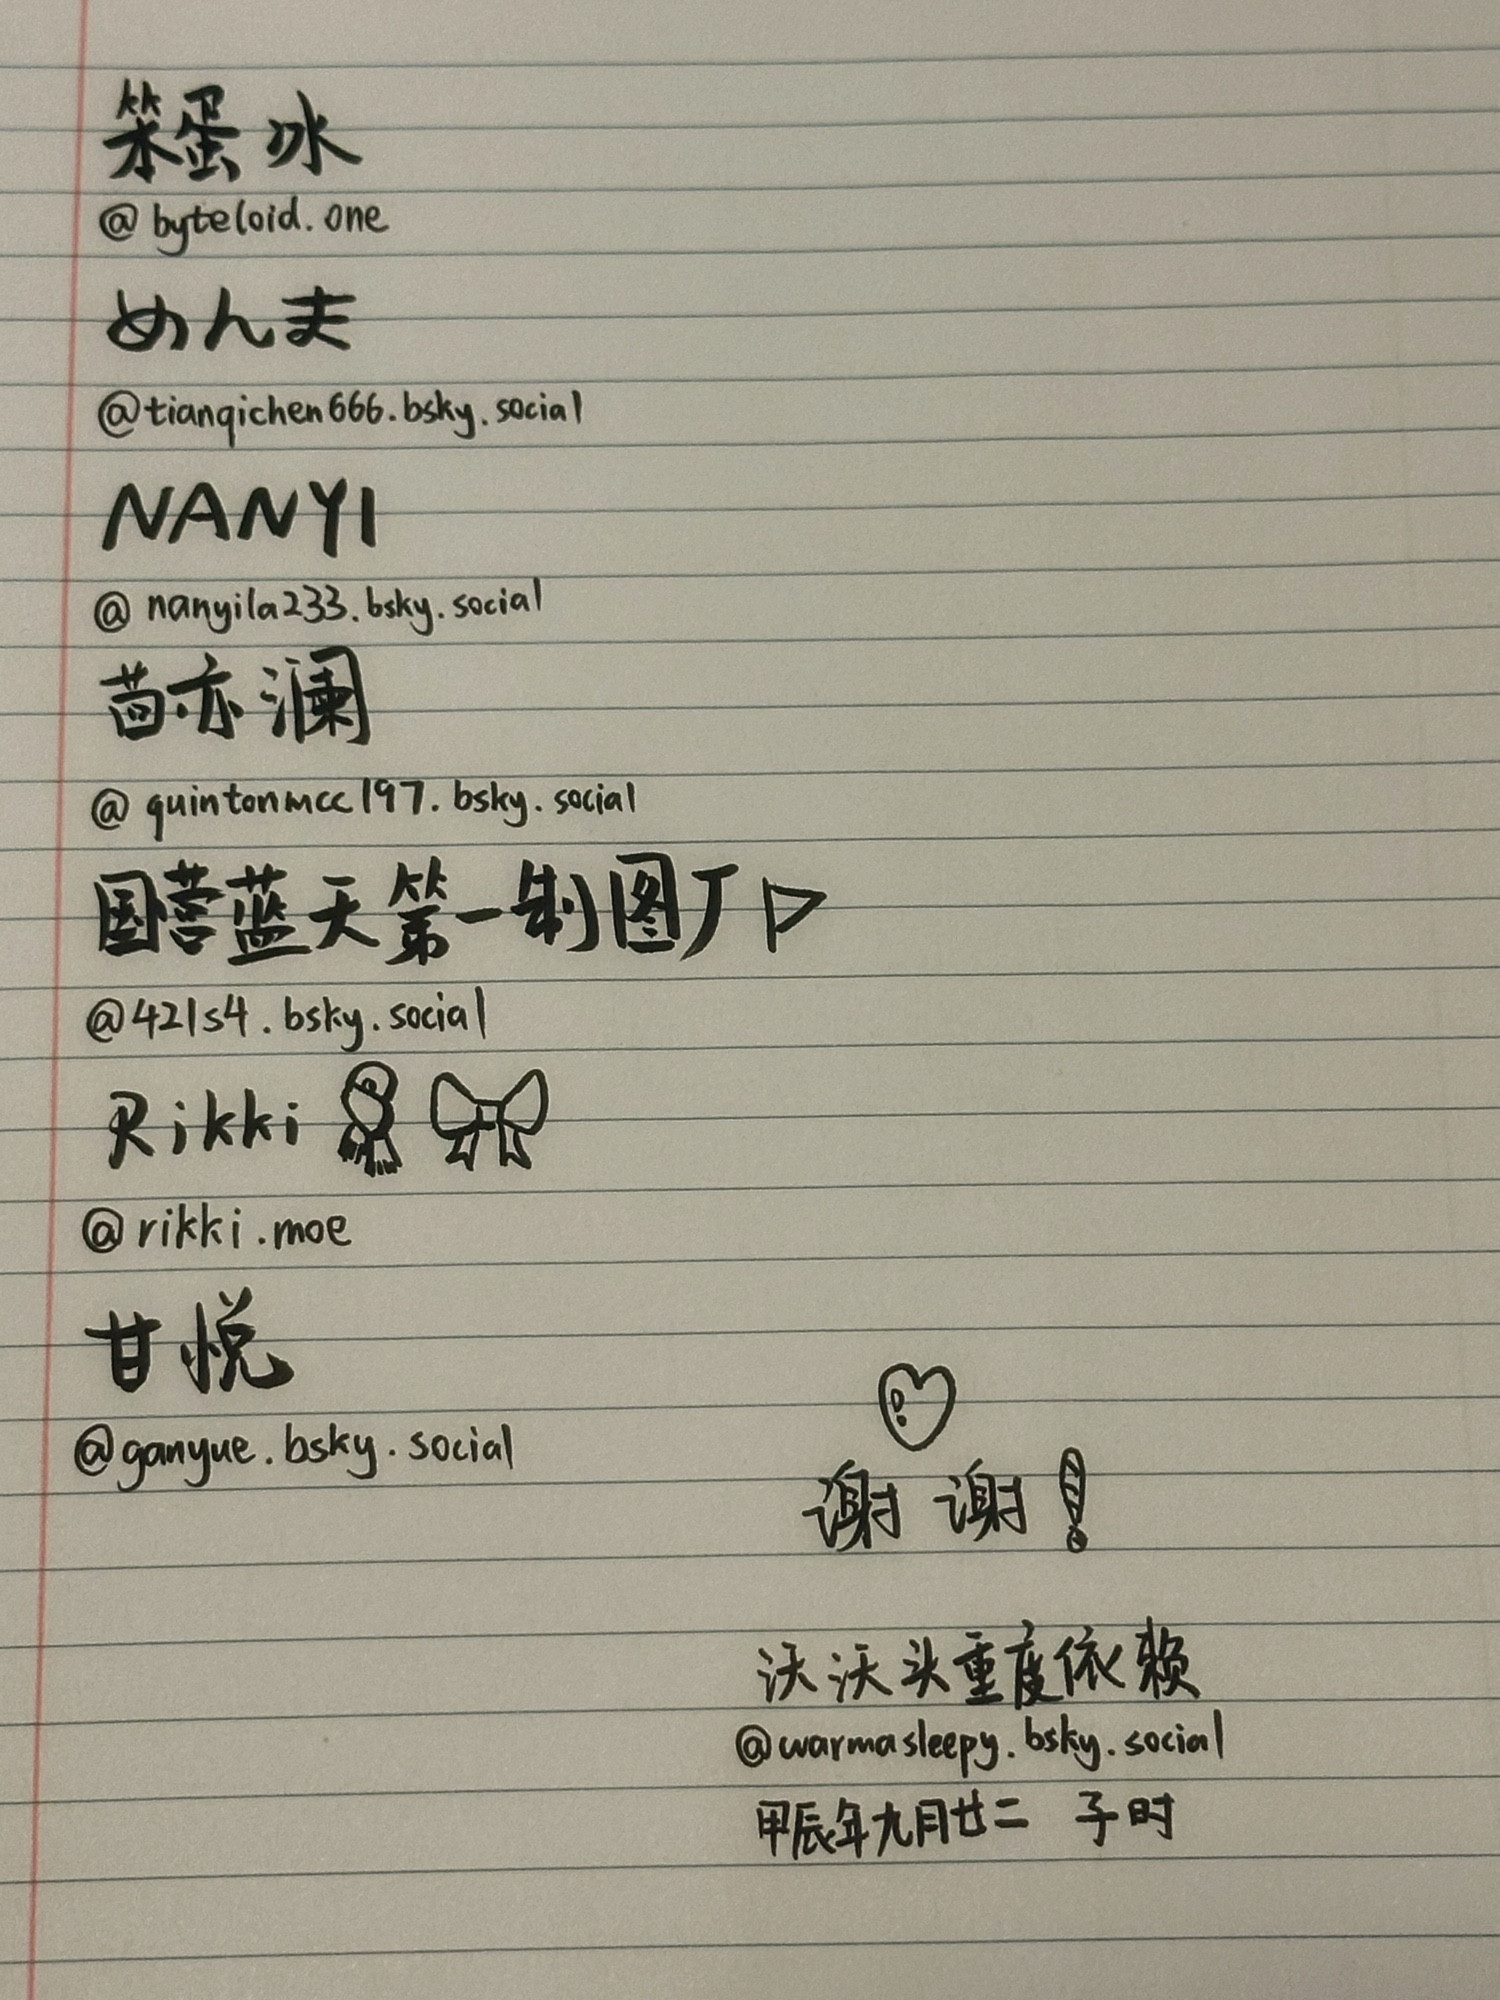 笨蛋冰
@byteloid.one
めんま
@tianqichen666.bsky.social
NANYI
@nanyila233.bsky.social
茴亦澜
@quintonmcc197.bsky.social
国营蓝天第一制图厂
@421s4.bsky.social
Rikki
@rikki.moe
甘悦
@ganyue.bsky.social
谢谢!
沃沃头重度依赖
@warmasleepy.bsky.social
甲辰年九月廿二 子时